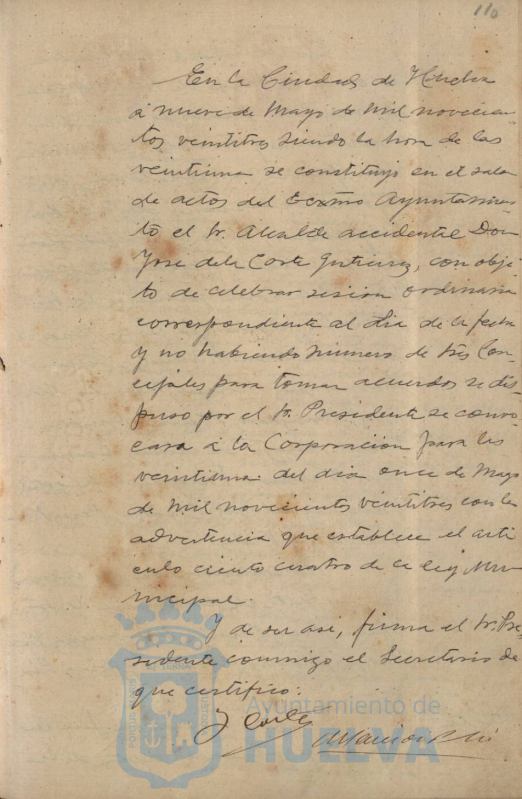 110
En la Ciudad de Huelva
á nueve de Mayo de mil novecien-
tos veintitres siendo la hora de las
veintiuna se constituyó en el sala
de actos del Excmo Ayuntamien-
to el Sr. Alcalde accidental Don
Jose de la Corte Gutierrez, con obje-
to de celebrar sesion ordinaria
correspondiente al dia de la fecha
y no habiendo número de Sres Con-
cejales para tomar acuerdos se dis-
puso por el Sr. Presidente se convo-
cara á la Corporacion para las
veintiuna del dia once de Mayo
de mil novecientos veintitres con la
advertencia que establece el arti
culo ciento cuatro de la ley Mu-
nicipal.
Y de ser asi, firma el Sr. Pre-
sidente conmigo el Secretario de
que certifico:
J Corte
Ayuntamiento de
HUELVA